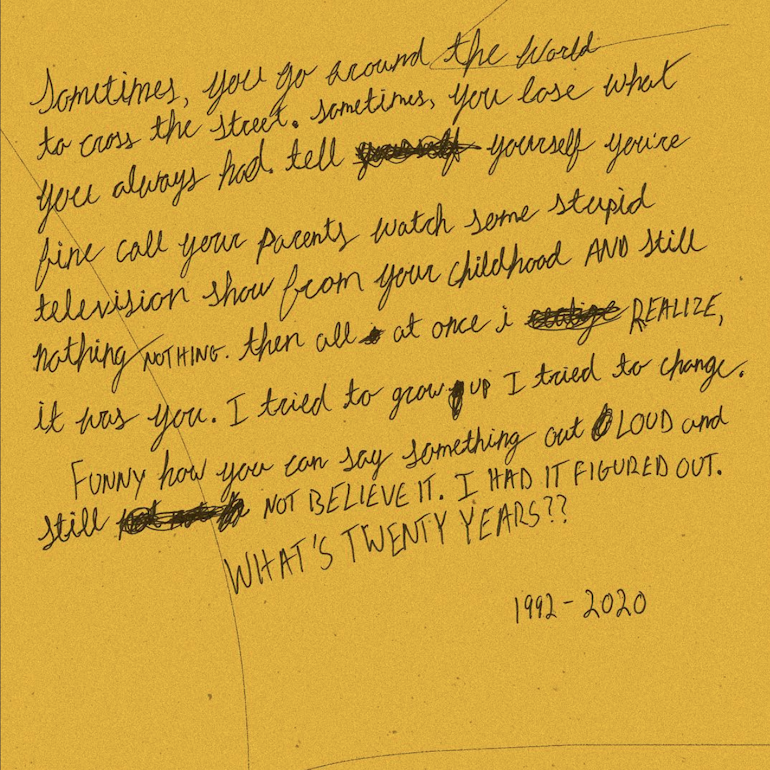 Sometimes, you go around the World
to cross the street. sometimes, you lose what
you always had. tell yourself you're
fine call your parents watch some stupid
television show from your childhood AND still
nothing NOTHING. then all at once i REALIZE,
it was you. I tried to grow up I tried to change.
FUNNY how you can say something out LOUD and
still NOT BELIEVE IT. I HAD IT FIGURED OUT.
WHAT'S TWENTY YEARS??
1992-2020